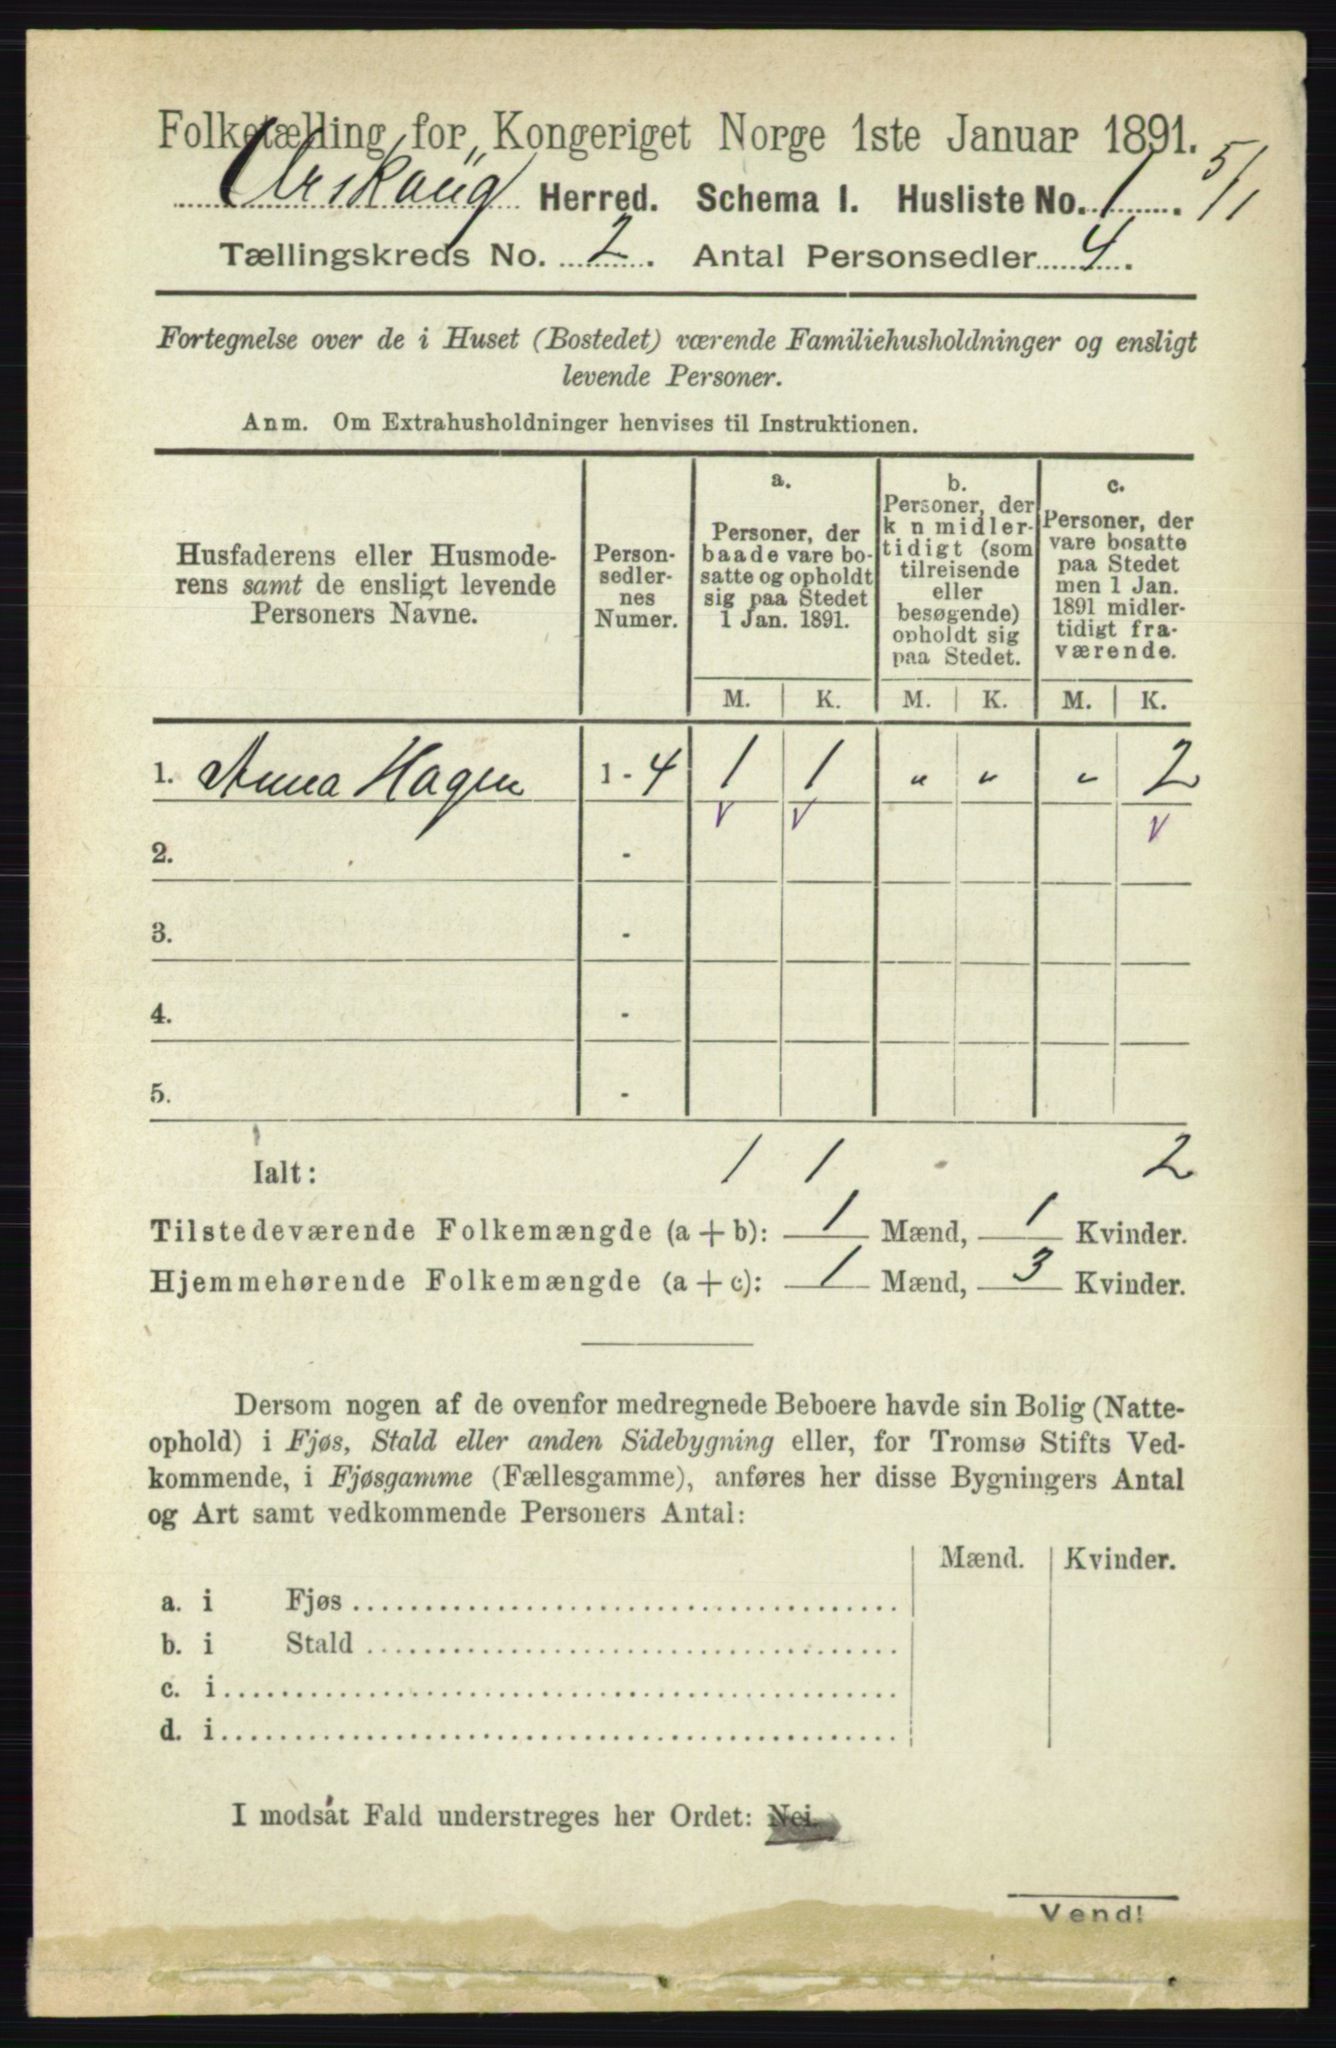 Folketælling for Kongeriget Norge 1ste Januar 1891.
Urskoug Herred. Schema I. Husliste No. 1. 5/1
Tællingskreds No. 2. Antal Personsedler 4.
Fortegnelse over de i Huset (Bostedet) værende Familiehusholdninger og ensligt
levende Personer.
Anm. Om Extrahusholdninger henvises til Instruktionen.
Husfaderens eller Husmode-
rens samt de ensligt levende
Personers Navne.
Person-
sedler-
nes
Numer.
a.
Personer, der
baade vare bo-
satte og opholdt
sig paa Stedet
1 Jan. 1891.
b.
Personer, der
k n midler-
tidigt (som
tilreisende
eller
besøgende)
opholdt sig
paa Stedet.
c.
Personer, der
vare bosatte
paa Stedet
men 1 Jan.
1891 midler-
tidigt fra-
værende.
M. K. M. K. M. K.
1. Anna Hagen 1 - 4 1 1 " " " 2
v v v
2. -
3. -
4. -
5. -
Ialt: 1 1 2
Tilstedeværende Folkemængde (a + b): 1 Mænd, 1 Kvinder.
Hjemmehørende Folkemængde (a + c): 1 Mænd, 3 Kvinder.
Dersom nogen af de ovenfor medregnede Beboere havde sin Bolig (Natte-
ophold) i Fjøs, Stald eller anden Sidebygning eller, for Tromsø Stifts Ved-
kommende, i Fjøsgamme (Fællesgamme), anføres her disse Bygningers Antal
og Art samt vedkommende Personers Antal:
Mænd. Kvinder.
a. i Fjøs
b. i Stald
c. i
d. i
I modsat Fald understreges her Ordet: Nei.
Vend!